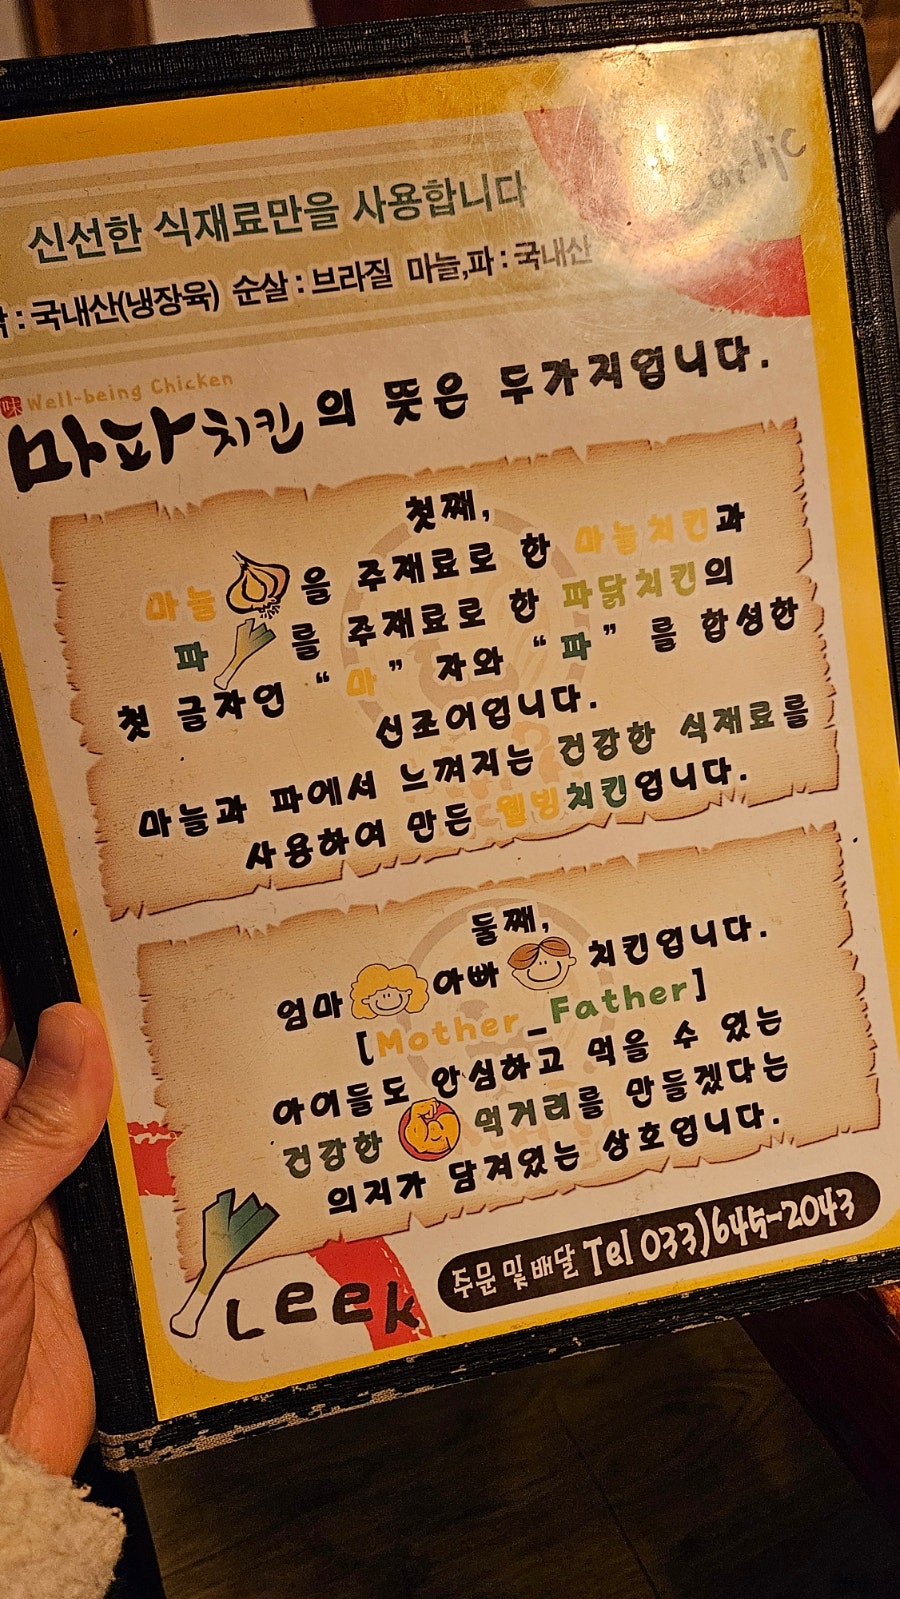 Garlic
신선한 식재료만을 사용합니다
: 국내산(냉장육) 순살 : 브라질 마늘,파 : 국내산
味 Well-being Chicken
마파치킨의 뜻은 두가지입니다.
첫째,
마늘을 주재료로 한 마늘치킨과
파를 주재료로 한 파닭치킨의
첫 글자인 “마” 자와 “파” 를 합성한
신조어입니다.
마늘과 파에서 느껴지는 건강한 식재료를
사용하여 만든 웰빙치킨입니다.
둘째,
엄마 아빠 치킨입니다.
[Mother_Father]
아이들도 안심하고 먹을 수 있는
건강한 먹거리를 만들겠다는
의지가 담겨있는 상호입니다.
Leek
주문 및 배달 Tel 033)645-2043